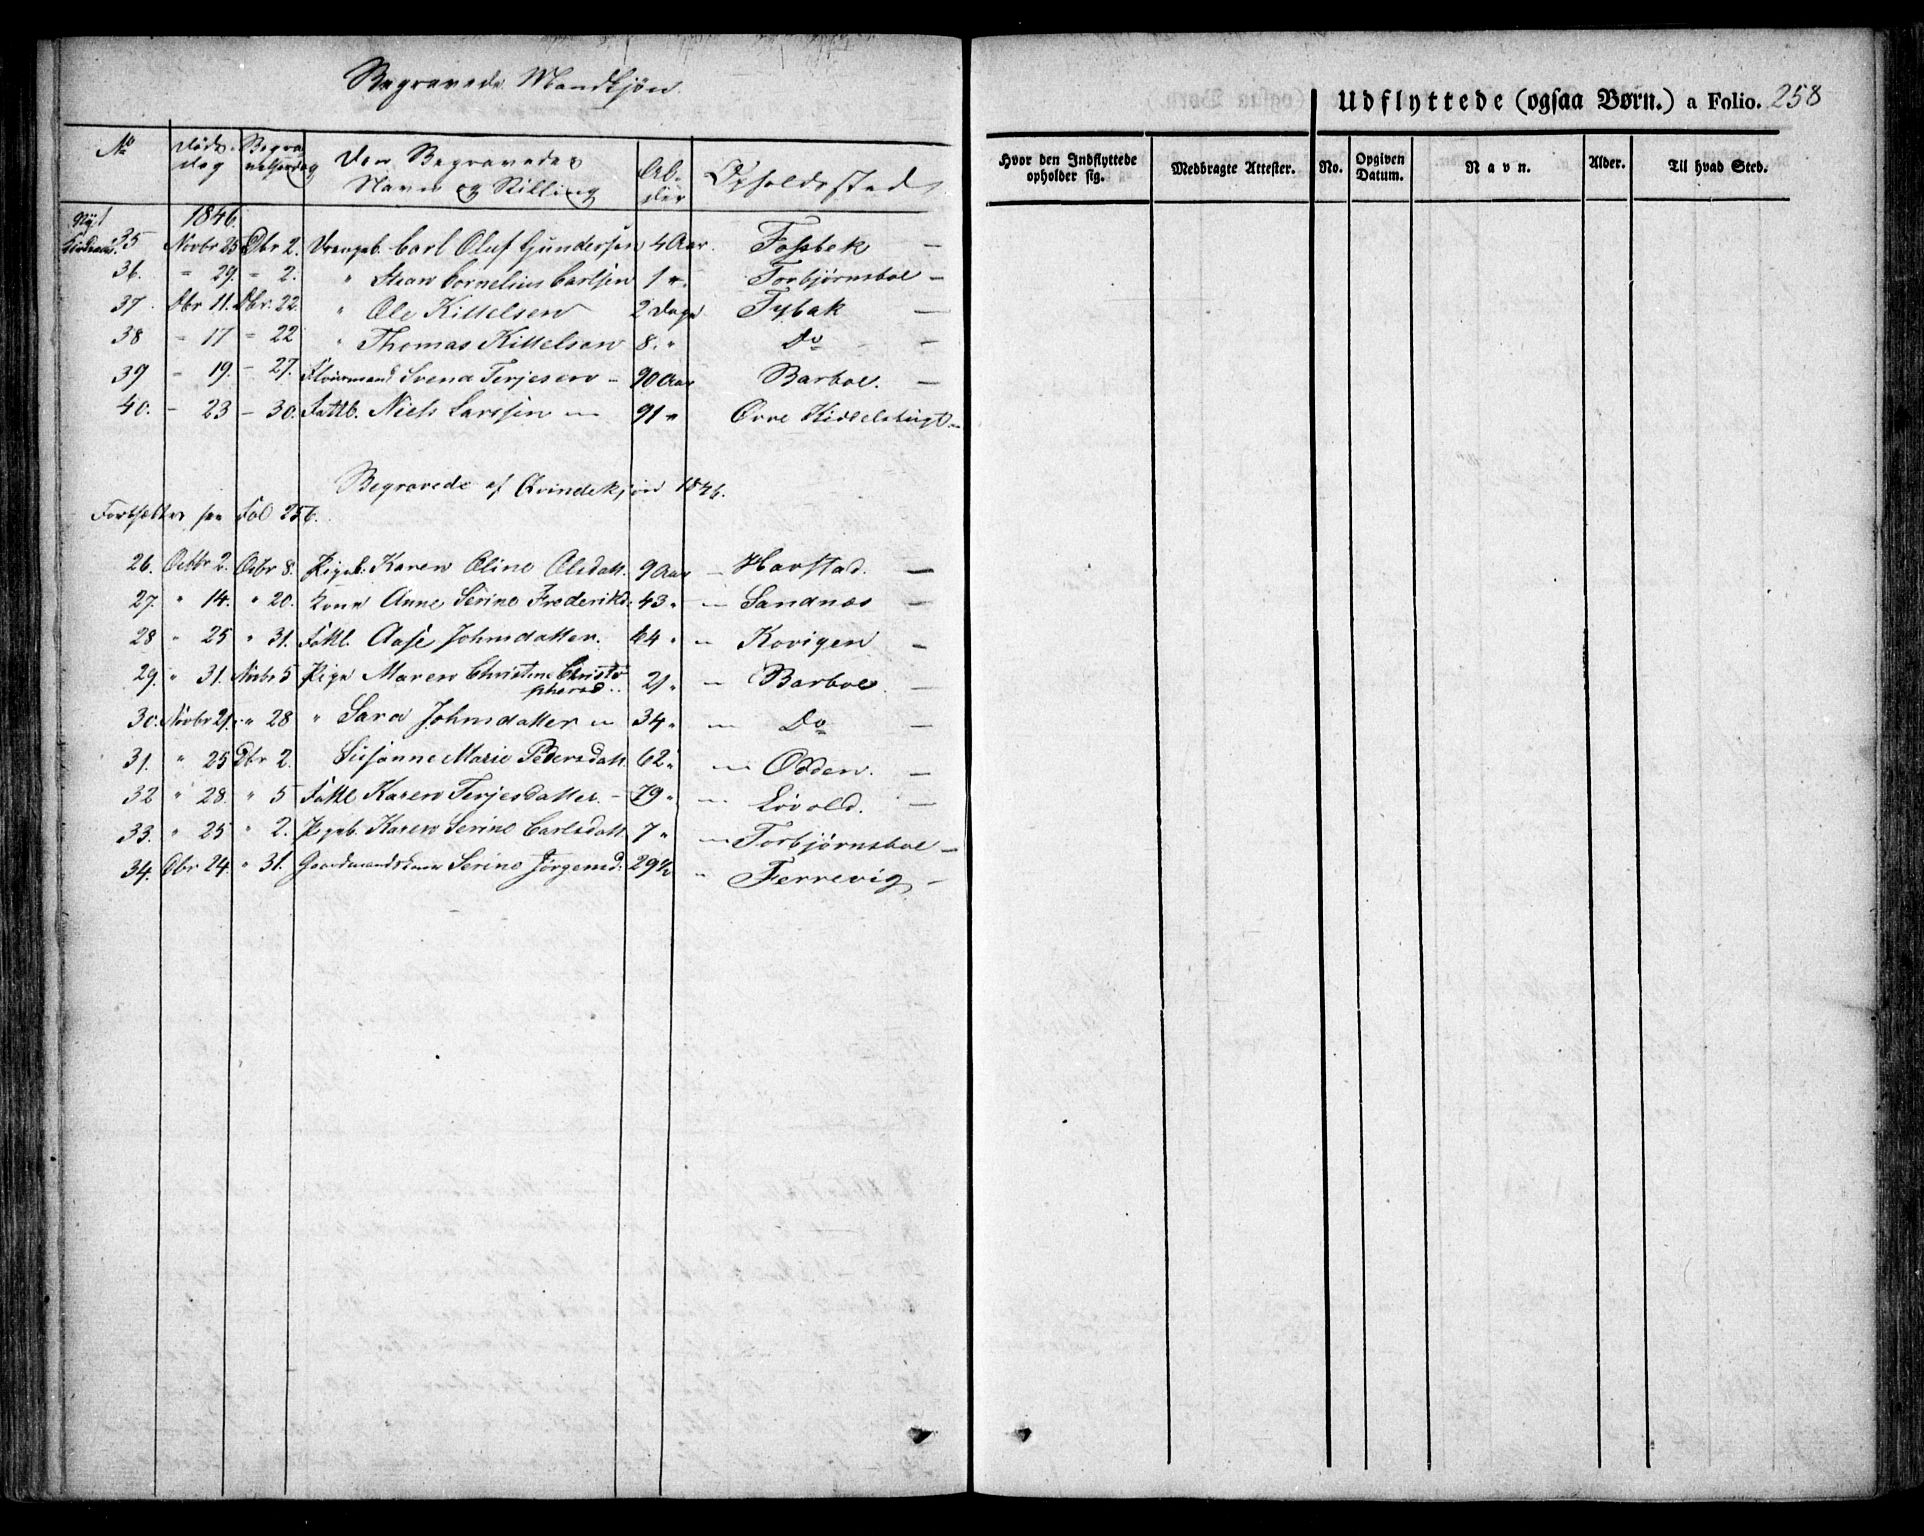 Begravede Mandkjøn.
No | Døds dag | Begravelsesdag | Den Begravedes Navn og Stilling | Alder | Opholdssted
1846
35 Novbr 25 Dbr 2. Drengeb. Carl Oluf Gundersen 4 Aar. Fossbek —
36. " 29. " 2. " Cornelius Carlsen 1 ". Torbjørnsboe —
37. Dbr 11. Dbr. 22 " Ole Kittelsen 2 Dage Tybak —
38 - 17 = 22 " Thomas Kittelsen 8. " Do —
39 - 19. - 27. Svend Terjesen - 90 Aar Barboe. —
40. - 23 - 30. Fattl. Niels Larssen — 91 " Øvre —
Begravede af Qvindekjøn 1846.
Fortsættes fra Fol 256.
26. Octbr 2. Octbr 8. Pigeb. Karen Oline Olsdatt. 9 Aar — Havstad. —
27. " 14. " 20. Kone Anne Serine Frederiks. 43 " — Sandnæs —
28 " 25 " 31. Fattl. Aase Johnsdatter. 64 " " Kovigen —
29. " 31. Novbr 5 Pige Maren Christine Christophersd.. 21 " — Barboe. —
30. Novbr 21. " 28 " Sara Johnsdatter — 34 " — Do —
31. " 25 Dbr 2. Susanne Marie Pedersdatt. 62 " — Odden. —
32 " 28. " 5 Fattl Karen Terjesdatter. - 79 " — Løvold. —
33. " 25 " 2. Pigeb. Karen Serine Carlsdatt. 7 " — Torbjørnsboe —
34. Dbr 24. " 31. Gaardmandskone Serine Jørgensd. 29 ½ " Ferrevig —
Udflyttede (ogsaa Børn.) a Folio. 258
Hvor den Indflyttede opholder sig. | Medbragte Attester. | No. | Opgiven Datum. | Navn. | Alder. | Til hvad Sted.